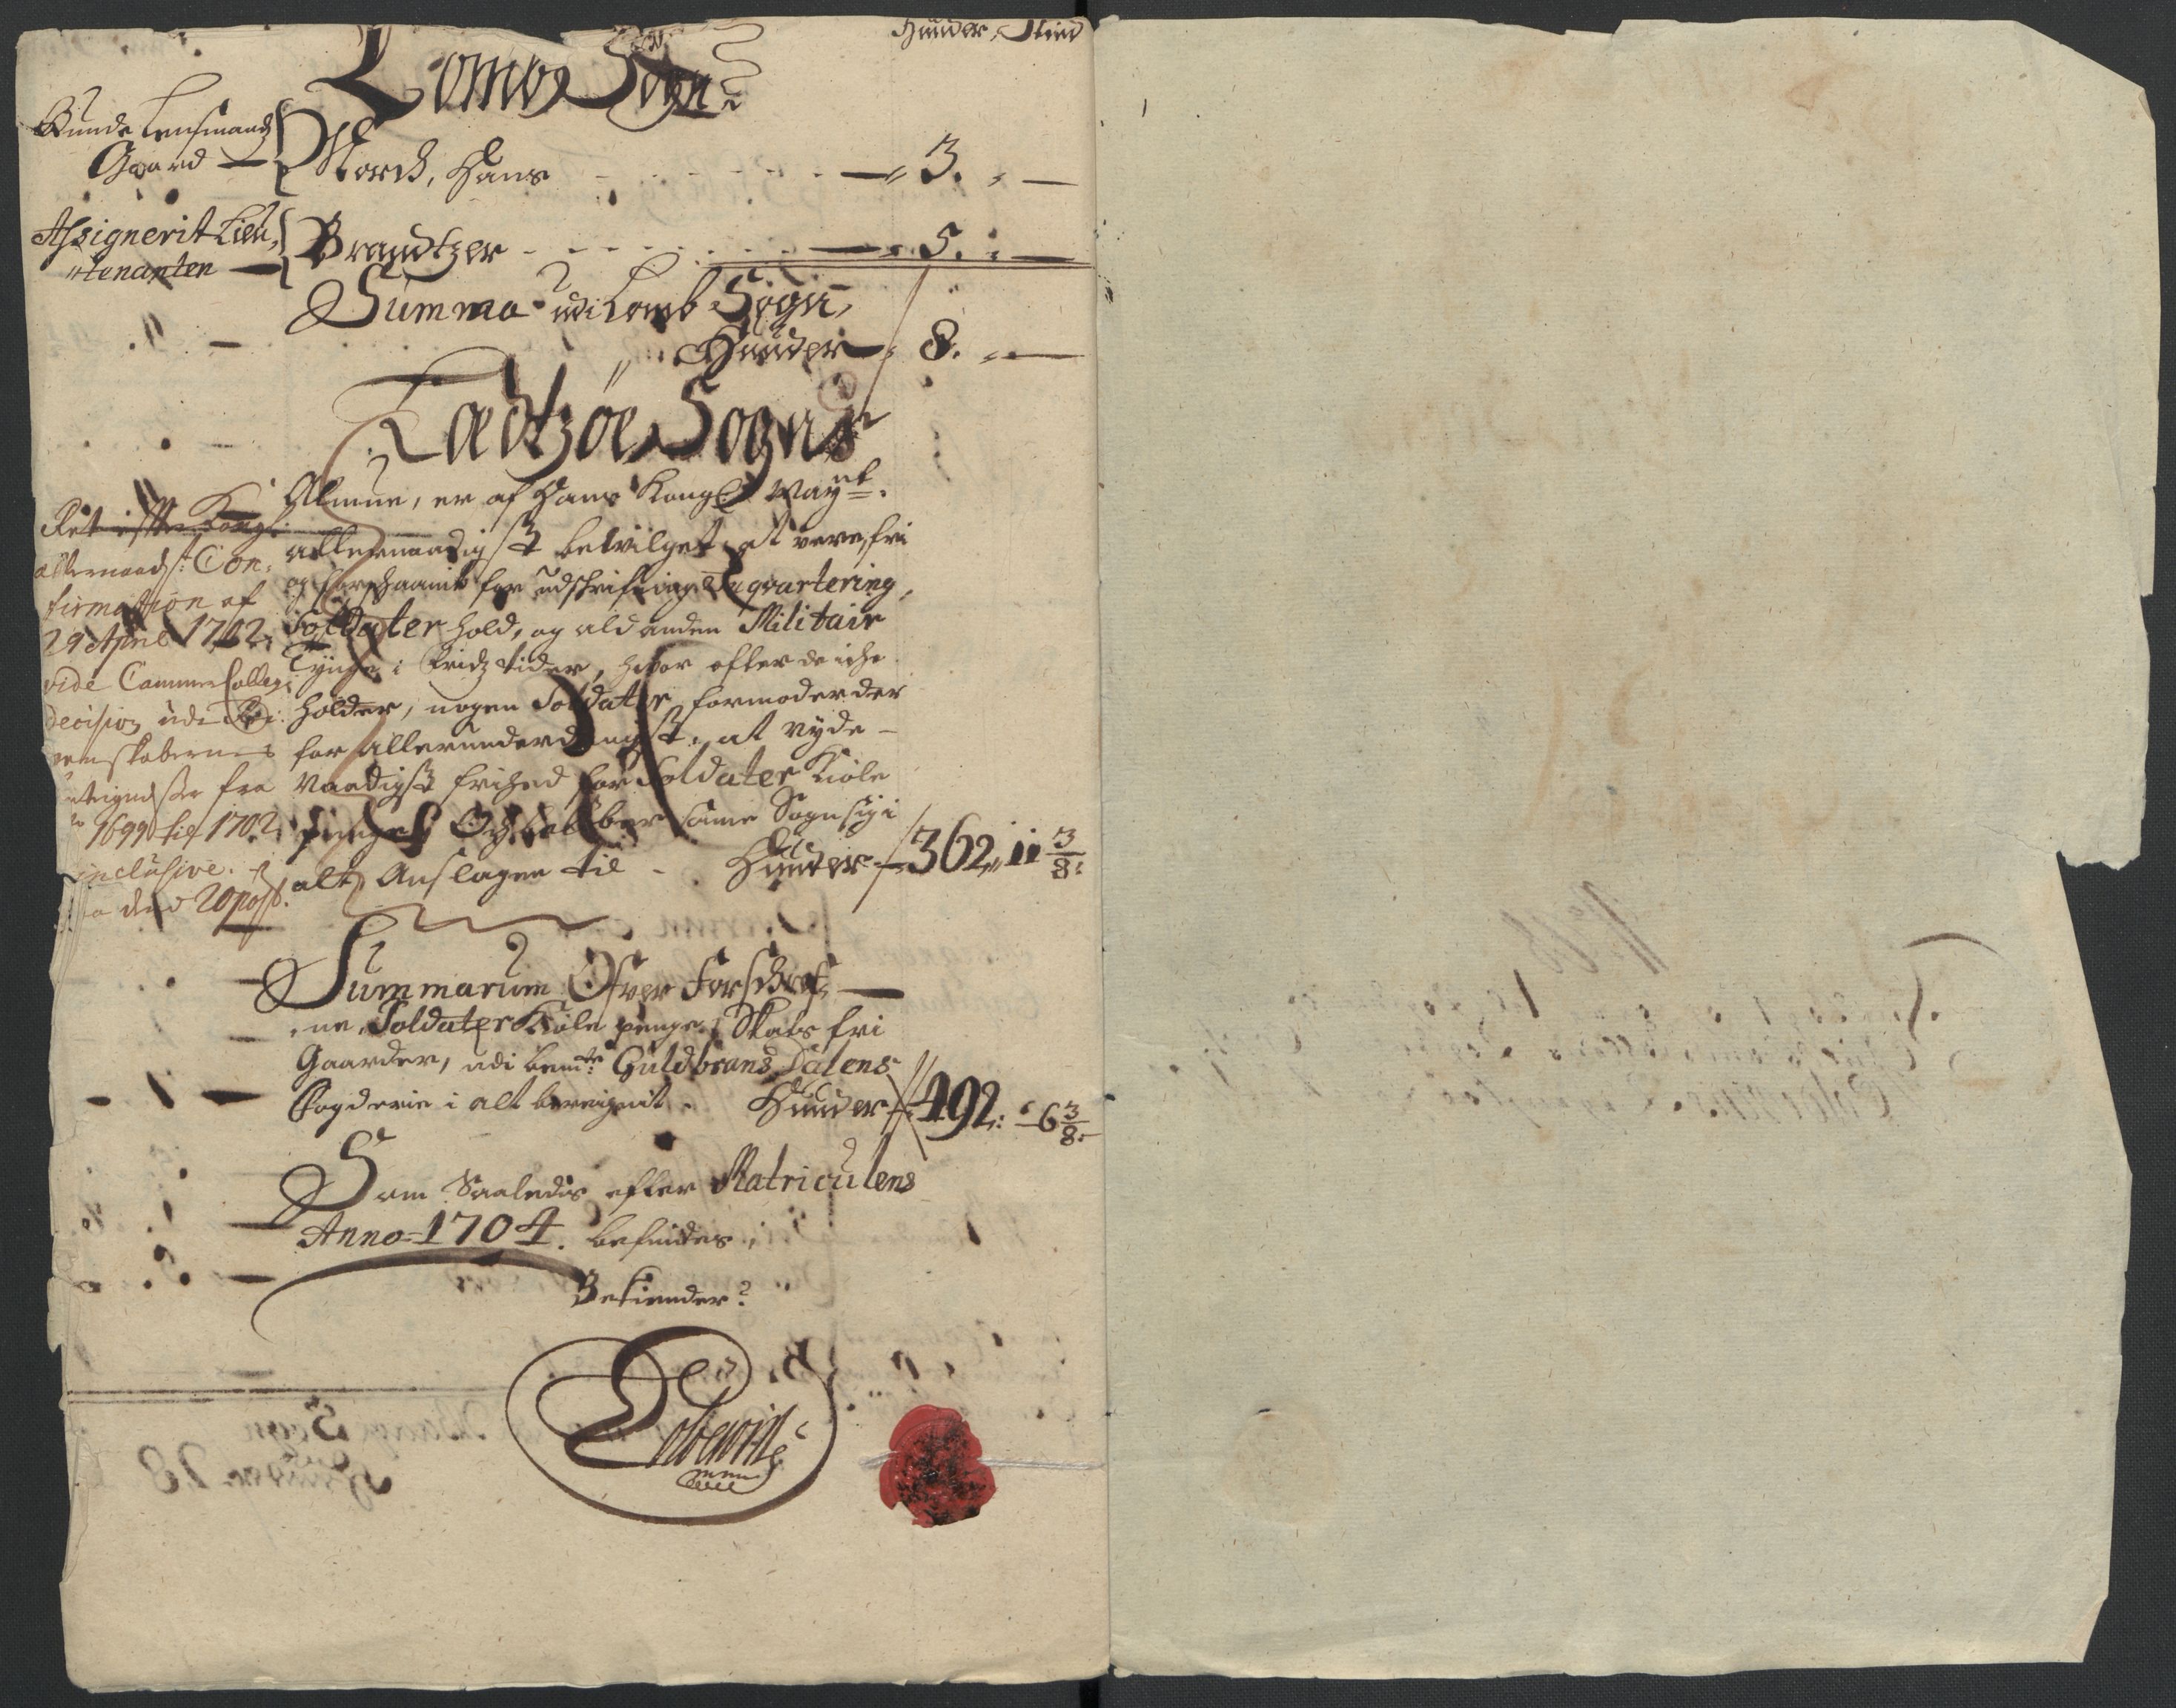 Hunder, Skind
Lomb Sogn
Bunde Lensmands
Gaard — Norck, Hans — 3. —
Assignerit Lieu-
tenanten — Brandtzer — 5. —
Summa udi Lomb Sogn,
Hunder — 8. —
Lædtzøe Sogns
Almue, er af Hans Kongl. Mayt.
allernaadigst bevilget at være fri
og forskaanit for udskrifning Inqvartering,
Soldater hold, og ald anden Militair
Tynge i Fridz tider, hvor efter de iche
holder, nogen Soldater formoder der
for allerunderdanigst, at nyde
Naadigst frihed for Soldater Kiole
penge Och beløber same Sogn sig i
alt Anslagen til - Hunder — 362 „ 11 3/8:
Ret efter Kongl.
allernaadst: Con-
firmation af
29 April 1702,
vide Cammer Collegi
Decision udi
fra
1699 til 1702
inclusive.
20 post.
Summarum Ofver Forschref-
ne, Soldater Kiole penge, Skats fri
Gaarder, udi bemte Guldbrands Dalens
Fogderie i alt beregnit - Hunder — 492: 6 3/8:
Som Saaledis efter Matriculens
Anno 1704. befindes,
Bekiender